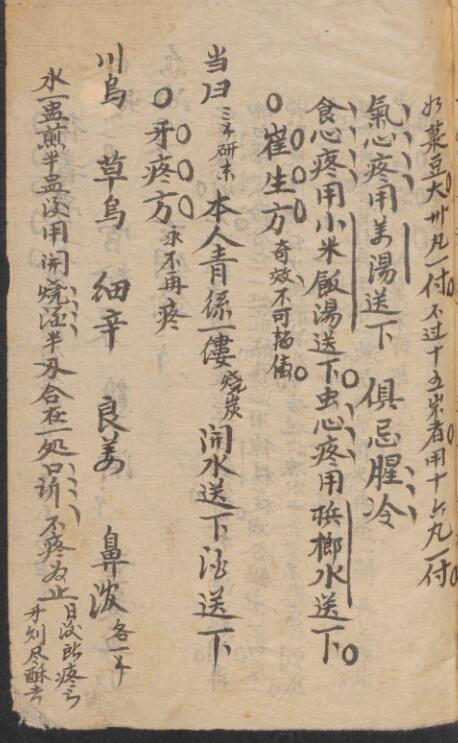 如菉豆大卅丸一付 不过十五岁者用十六丸一付
氣心疼用姜湯送下 俱忌腥冷
食心疼用小米飯湯送下虫心疼用梹榔水送下
崔生方 奇效不可輕傳
当归 三戋研末 本人青絲一縷 燒炭 開水送下酒送下
牙疼方 永不再疼
川烏 草烏 細辛 良姜 鼻 各一戋
水一盅煎半盅後用開燒酒半 合在一処口 不疼為止 日後所疼之牙刻尽酥去